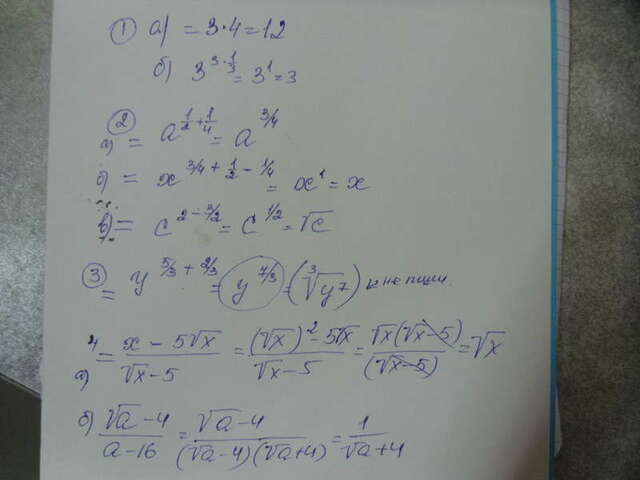 ① а) = 3·4 = 12
б) 3^{3·1/3} = 3^1 = 3
② а) = a^{1/2+1/4} = a^{3/4}
б) = x^{3/4+1/2-1/4} = x^1 = x
в) = c^{2-3/2} = c^{1/2} = √c
③ = y^{5/3+2/3} = y^{7/3} = (∛y^7) не пиши
4 а) = (x-5√x)/(√x-5) = ((√x)^2-5√x)/(√x-5) = √x(√x-5)/(√x-5) = √x
б) (√a-4)/(a-16) = (√a-4)/((√a-4)(√a+4)) = 1/(√a+4)